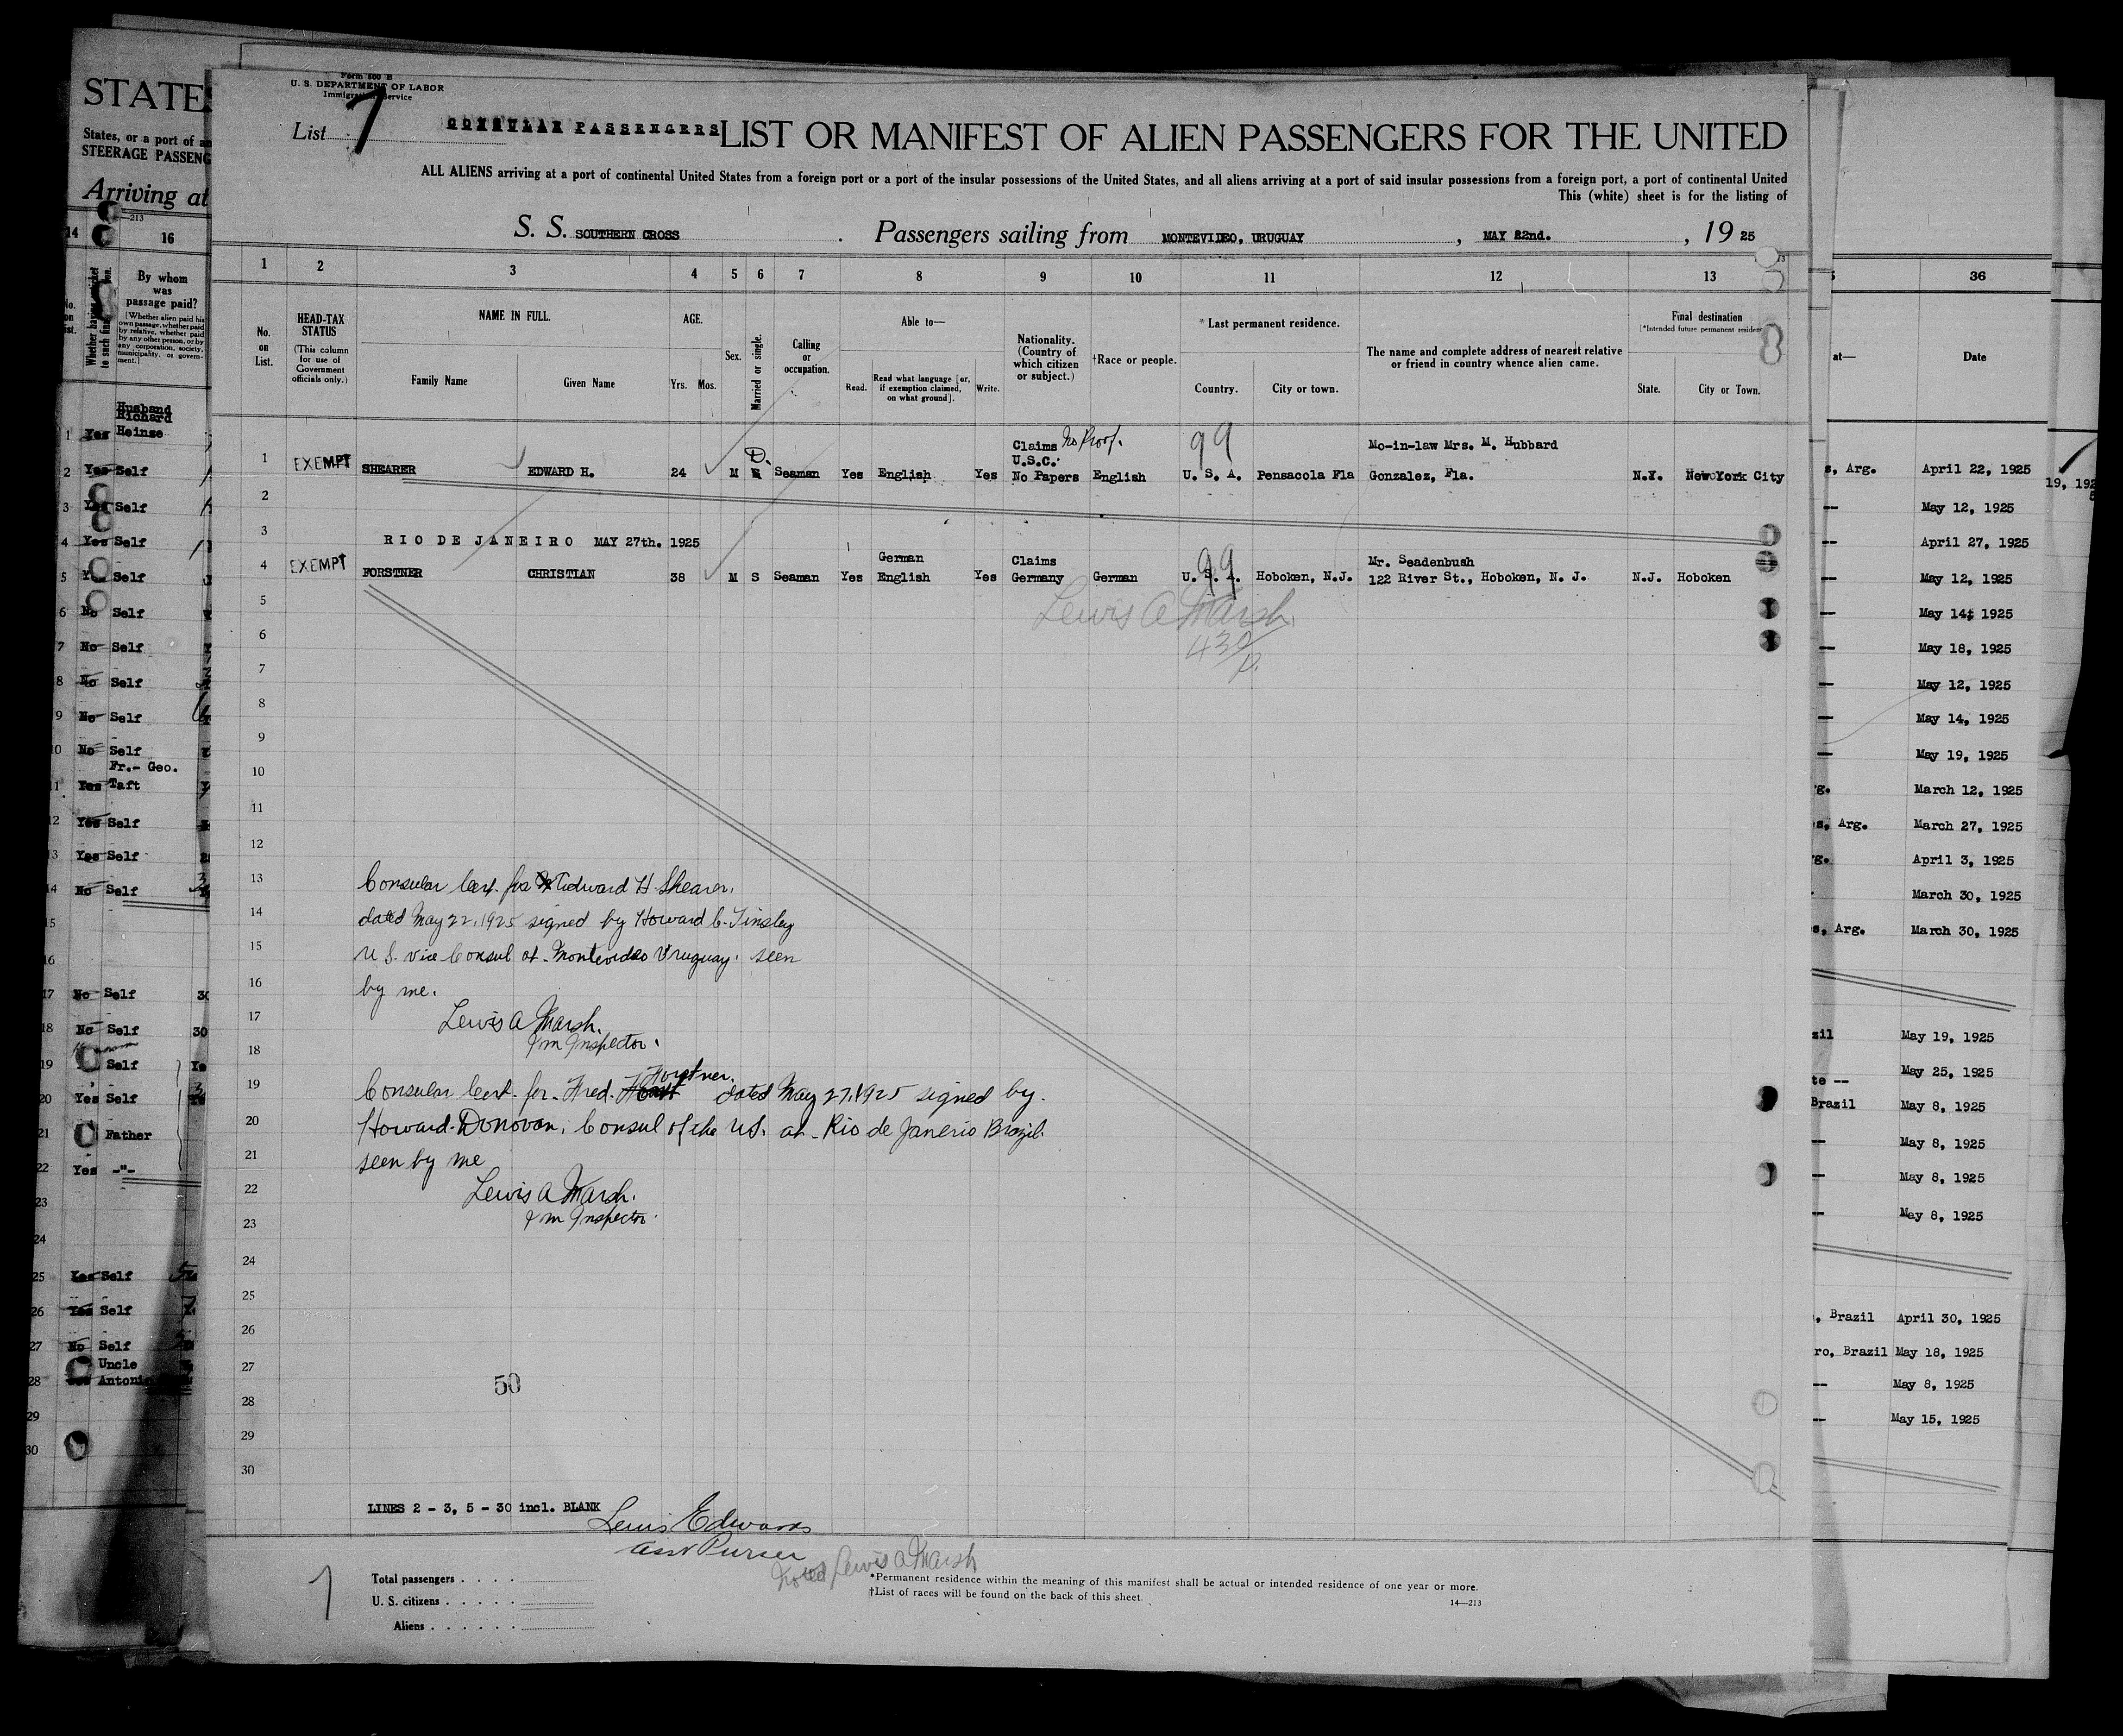 STATE
States, or a port of an
STEERAGE PASSENG
Arriving at
14 16
By whom
was
passage paid?
[Whether alien paid his
own passage, whether paid
by relative, whether paid
by any other person, or by
any corporation, society,
municipality, or govern-
ment.]
Husband
Richard
1 Yes Heinze
2 Yes Self
3 Yes Self
4 Yes Self
5 Self
6 No Self
7 No Self
8 No Self
9 No Self
10 No Self
Fr.- Geo.
11 Yes Taft
12 Yes Self
13 Yes Self
14 No Self
15
16
17 No Self 30
18 No Self 30
19 Self
20 Yes Self
21 Father
22 Yes -"-
23
24
25 Yes Self
26 Yes Self
27 No Self
Uncle
28 Antonio
29
30
Form 500 B
U. S. DEPARTMENT OF LABOR
Immigration Service
List 7
CONSULAR PASSENGERS LIST OR MANIFEST OF ALIEN PASSENGERS FOR THE UNITED
ALL ALIENS arriving at a port of continental United States from a foreign port or a port of the insular possessions of the United States, and all aliens arriving at a port of said insular possessions from a foreign port, a port of continental United
This (white) sheet is for the listing of
S. S. SOUTHERN CROSS. Passengers sailing from MONTEVIDEO, URUGUAY, MAY 22nd., 1925
1 2 3 4 5 6 7 8 9 10 11 12 13
No. on List.
HEAD-TAX STATUS
(This column for use of Government officials only.)
NAME IN FULL.
Family Name Given Name
AGE.
Yrs. Mos.
Sex.
Married or single.
Calling or occupation.
Able to—
Read. Read what language [or, if exemption claimed, on what ground]. Write.
Nationality. (Country of which citizen or subject.)
†Race or people.
*Last permanent residence.
Country. City or town.
The name and complete address of nearest relative or friend in country whence alien came.
Final destination
State. City or Town.
Claims No Proof. 99 Mo-in-law Mrs. M. Hubbard
D. U.S.C.
1 EXEMPT SHEARER EDWARD H. 24 M Seaman Yes English Yes No Papers English U. S. A. Pensacola Fla Gonzalez, Fla. N.Y. New York City
2
3 RIO DE JANEIRO MAY 27th. 1925
German Claims 99 Mr. Seadenbush
4 EXEMPT FORSTNER CHRISTIAN 38 M S Seaman Yes English Yes Germany German U. S. A. Hoboken, N.J. 122 River St., Hoboken, N. J. N.J. Hoboken
5 Lewis A Marsh.
6 430
7
8
9
10
11
12
13 Consular Cert. for Edward H. Shearer.
14 dated May 22, 1925 signed by Howard C. Tinsley
15 U S. vice Consul at Montevideo Uruguay. seen
16 by me.
17 Lewis A Marsh.
18 Imm Inspector.
Forstner.
19 Consular Cert. for Fred. dated May 27, 1925 signed by.
20 Howard Donovan, Consul of the US. at Rio de Janerio Brazil.
21 seen by me
22 Lewis A Marsh.
23 Imm Inspector.
24
25
26
27
50
28
29
30
LINES 2 - 3, 5 - 30 incl. BLANK
Lewis Edwards
Asst Purser
Noted Lewis A Marsh
7
Total passengers . . . .
U. S. citizens . . . . .
Aliens . . . . . .
*Permanent residence within the meaning of this manifest shall be actual or intended residence of one year or more.
†List of races will be found on the back of this sheet.
14—213
36
at— Date
s, Arg. April 22, 1925
19, 192
5
— May 12, 1925
— April 27, 1925
— May 12, 1925
— May 14, 1925
— May 18, 1925
— May 12, 1925
— May 14, 1925
— May 19, 1925
g. March 12, 1925
s, Arg. March 27, 1925
g. April 3, 1925
March 30, 1925
s, Arg. March 30, 1925
zil May 19, 1925
te -- May 25, 1925
Brazil May 8, 1925
— May 8, 1925
— May 8, 1925
— May 8, 1925
, Brazil April 30, 1925
ro, Brazil May 18, 1925
-- May 8, 1925
— May 15, 1925